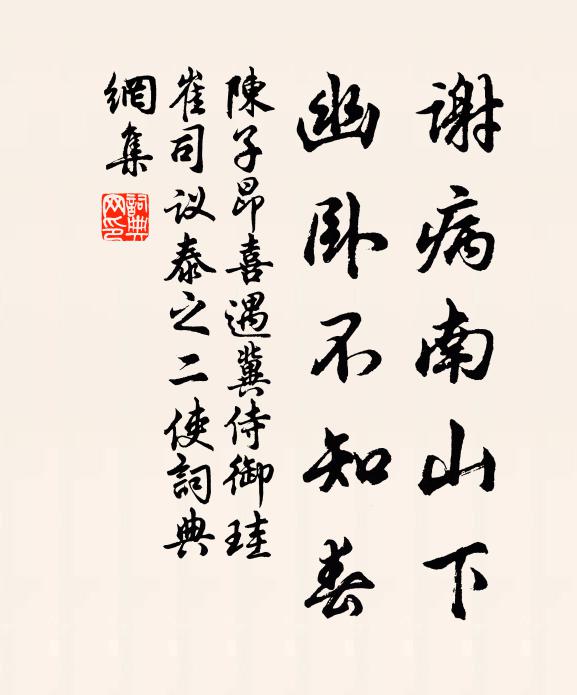 謝病南山下
幽卧不知春
陳子昂喜遇冀侍御珪
崔司议泰之二使詞典
網集
詞典
网印